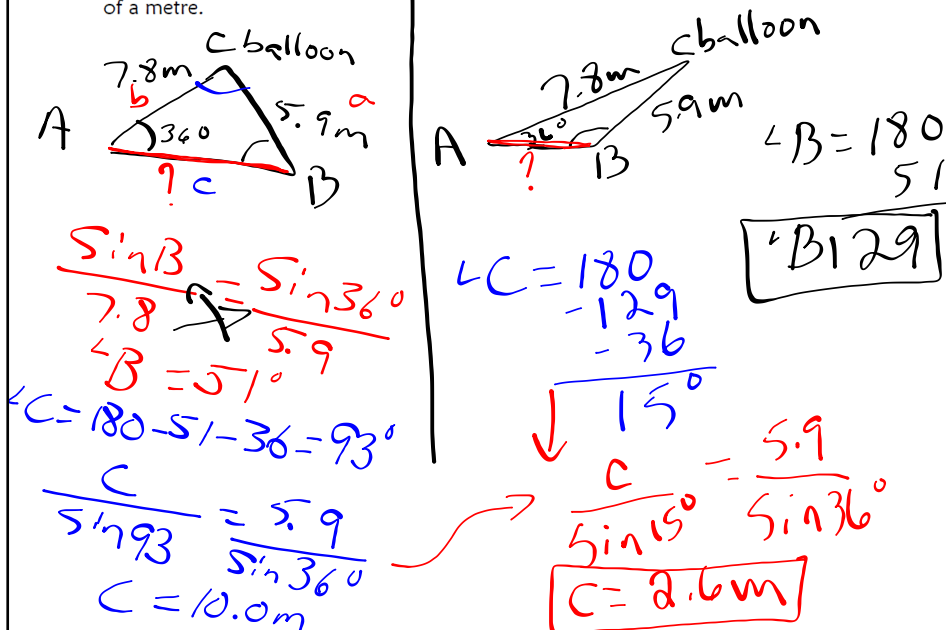 of a metre.
C balloon
7.8m
b
5.9m
a
A
36°
? c
B
Sin B / 7.8 = Sin 36° / 5.9
∠B = 51°
∠C = 180 - 51 - 36 = 93°
C / Sin 93 = 5.9 / Sin 36°
C = 10.0m
C balloon
7.8m
5.9m
A
36°
?
B
∠B = 180
51
∠B 129
∠C = 180
- 129
- 36
15°
C / Sin 15° = 5.9 / Sin 36°
C = 2.6m